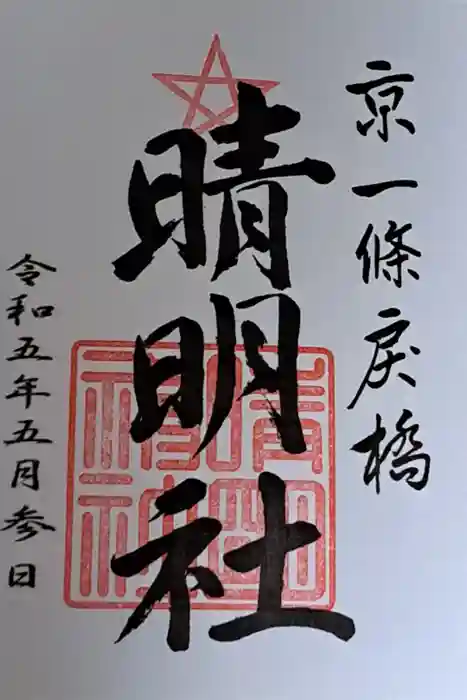 京一條戻橋
晴明社
令和五年五月参日